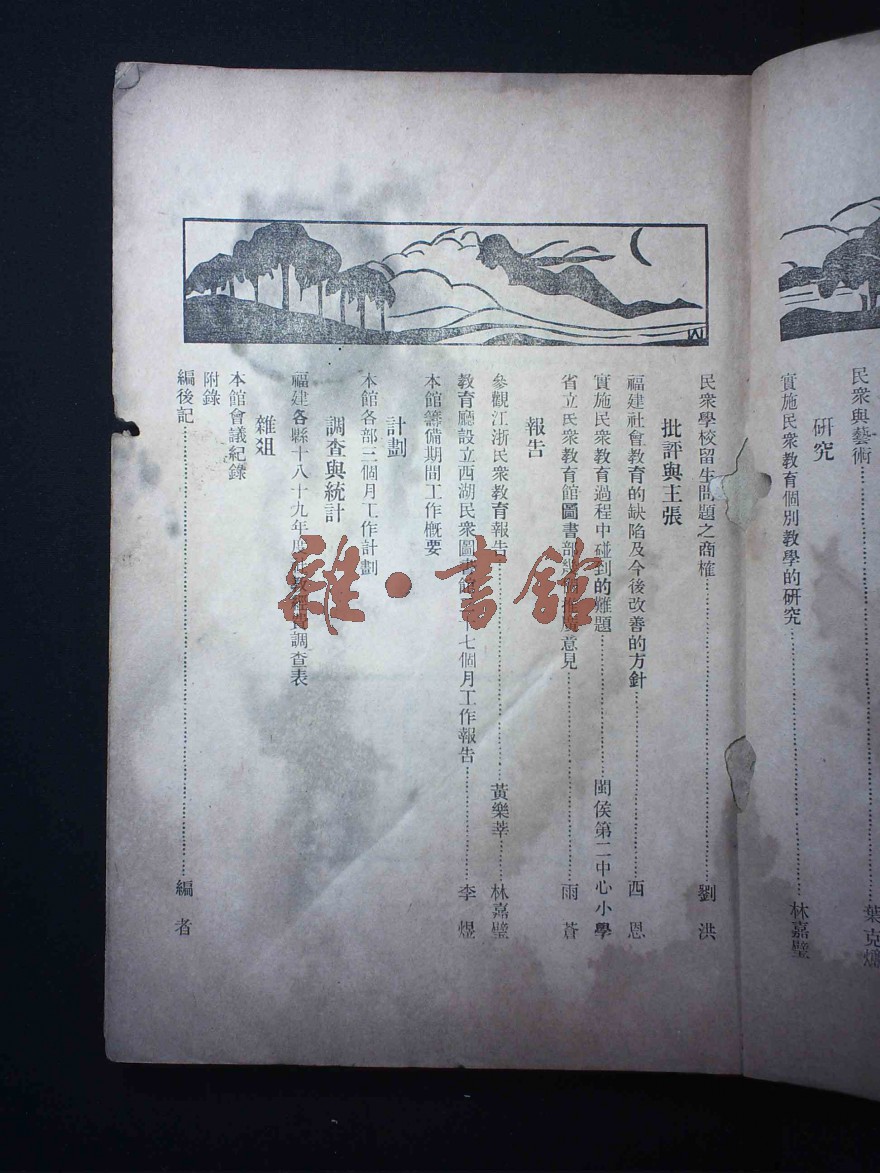 民衆與藝術………葉克
研究
實施民衆教育個別教學的研究………林嘉璧
民衆學校留生問題之商榷………劉洪
批評與主張
福建社會教育的缺陷及今後改善的方針………西恩
實施民衆教育過程中碰到的難題………閩侯第二中心小學
省立民衆教育館圖書部 意見………雨蒼
報告
參觀江浙民衆教育報告………黃樂莘 林嘉璧
教育廳設立西湖民衆圖書館 七個月工作報告………李煜
本館籌備期間工作概要
計劃
本館各部三個月工作計劃
調查與統計
福建各縣十八十九年度 調查表
雜俎
本館會議紀錄
附錄
編後記………編者
雜·書館